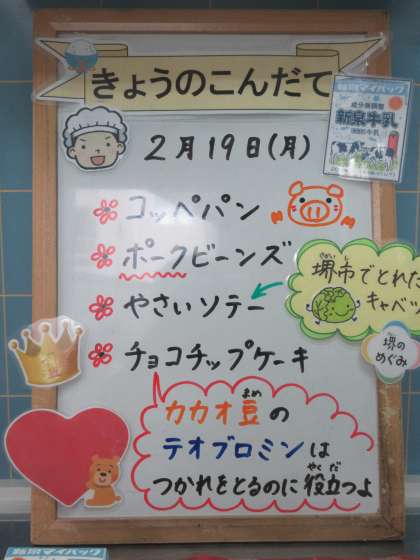 きょうのこんだて
新泉マイパック
成分無調整
新泉牛乳
2月19日(月)
コッペパン
ポークビーンズ
やさいソテー
堺市でとれた
キャベツ
堺の
めぐみ
チョコチップケーキ
カカオ豆の
テオブロミンは
つかれをとるのに役立つよ